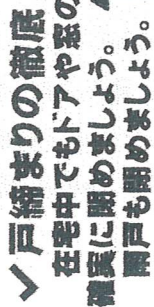 ✓戸締まりの徹底
在宅中でもドアや窓の
確実に閉めましょう。
雨戸も閉めましょう。